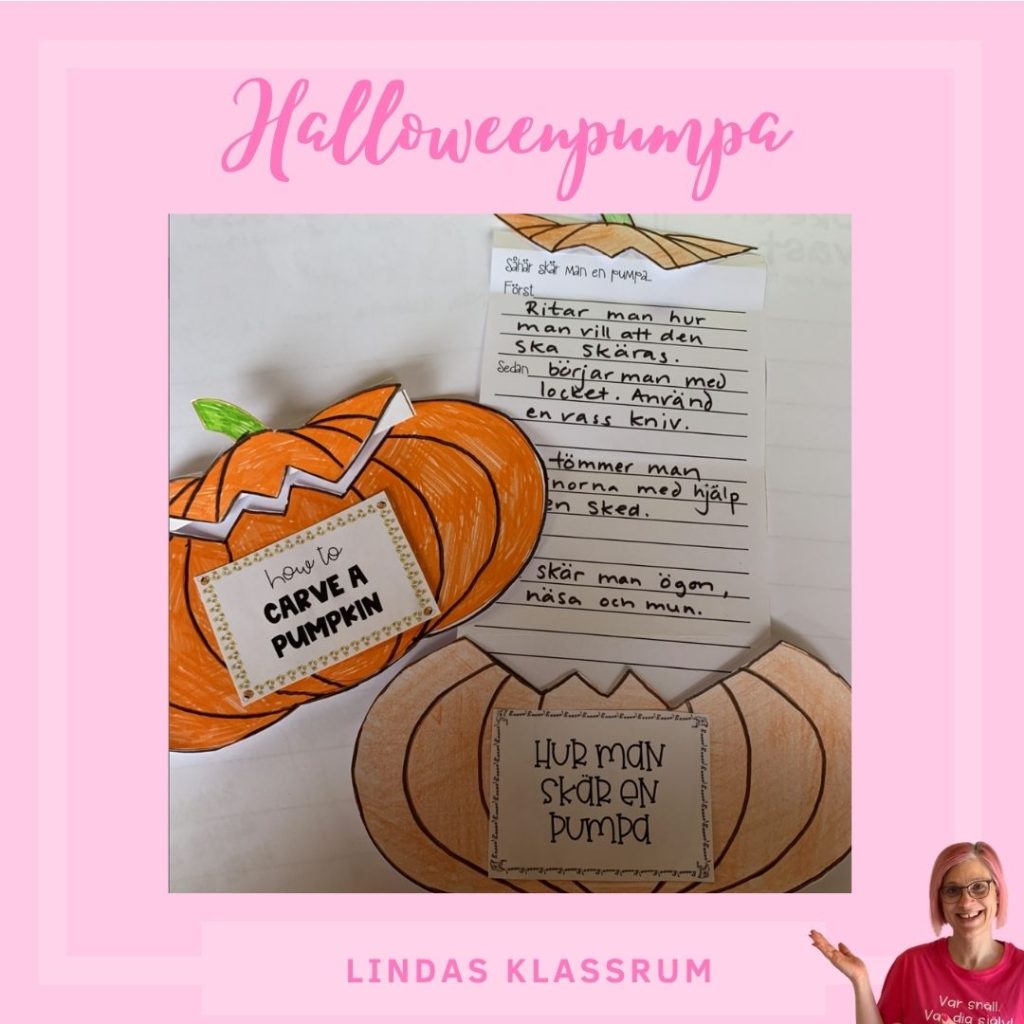 Halloweenpumpa
Såhär skär man en pumpa...
Först
Ritar man hur
man vill att den
ska skäras.
Sedan börjar man med
locket. Använd
en vass kniv.
tömmer man
med hjälp
en sked.
skär man ögon,
näsa och mun.
how to
CARVE A
PUMPKIN
HUR MAN
SKÄR EN
PUMPA
LINDAS KLASSRUM
Var snäll.
dig själv!